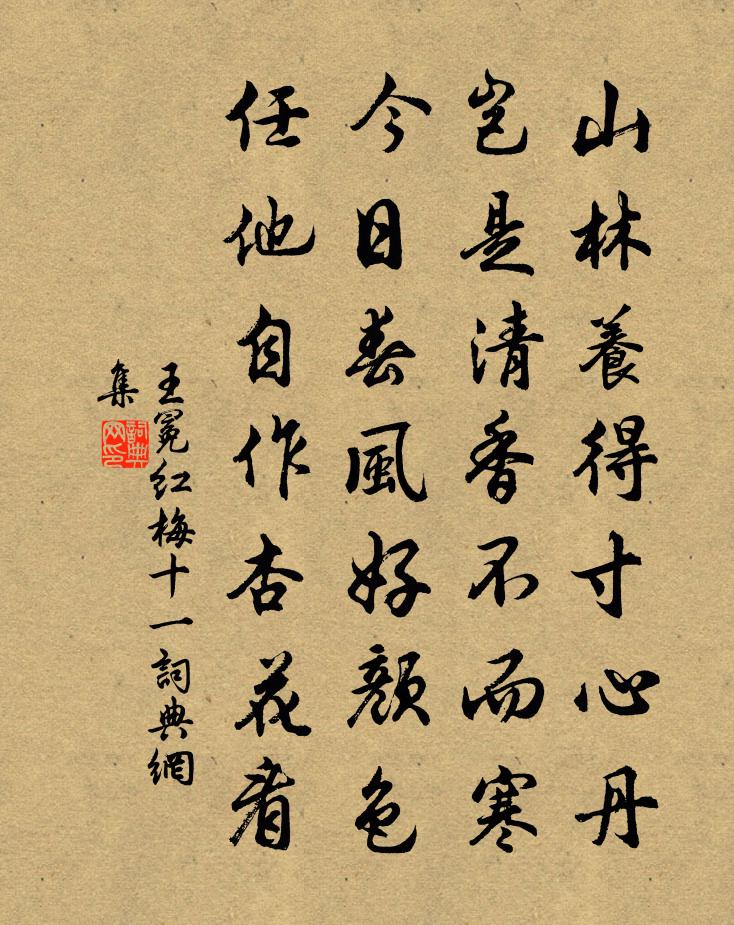 山林養得寸心丹
豈是清香不而寒
今日春風好顏色
任他自作杏花看
王冕紅梅十一詞典網
集
詞典
网印